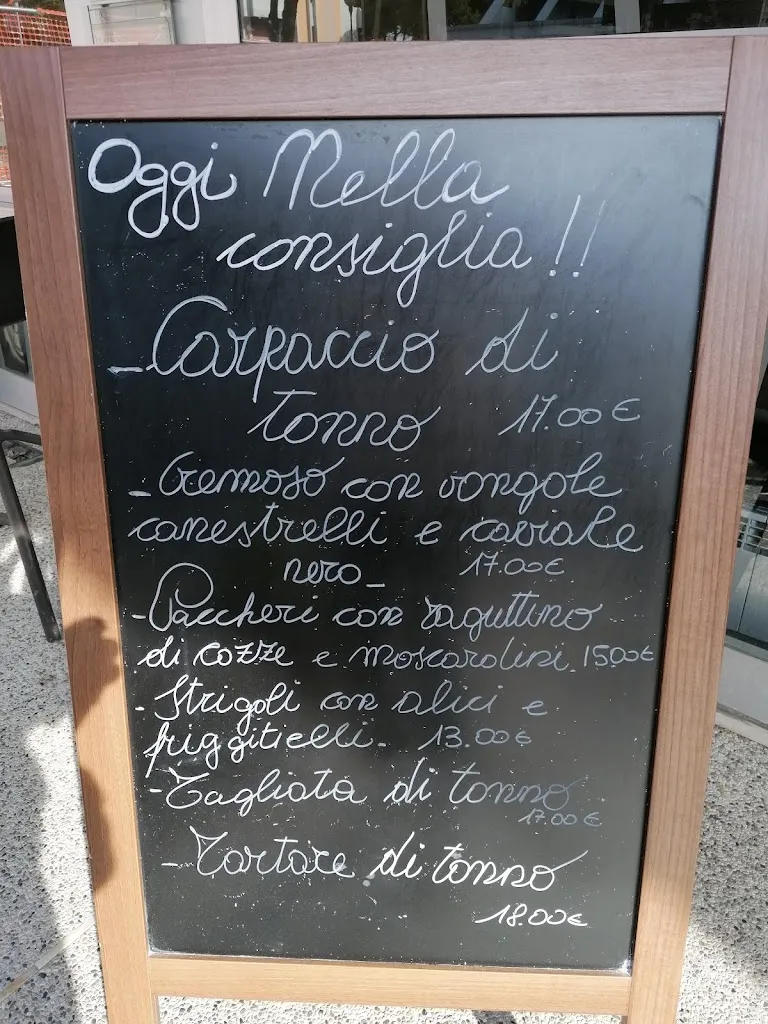 Oggi Mella
consiglia!!
- Carpaccio di
tonno 17.00€
- Cremoso con vongole
canestrelli e caviale
nero - 17.00€
- Paccheri con raguttino
di cozze e moscardini 15.00€
- Strigoli con alici e
friggitielli. 13.00€
- Tagliata di tonno
17.00€
- Tartare di tonno
18.00€